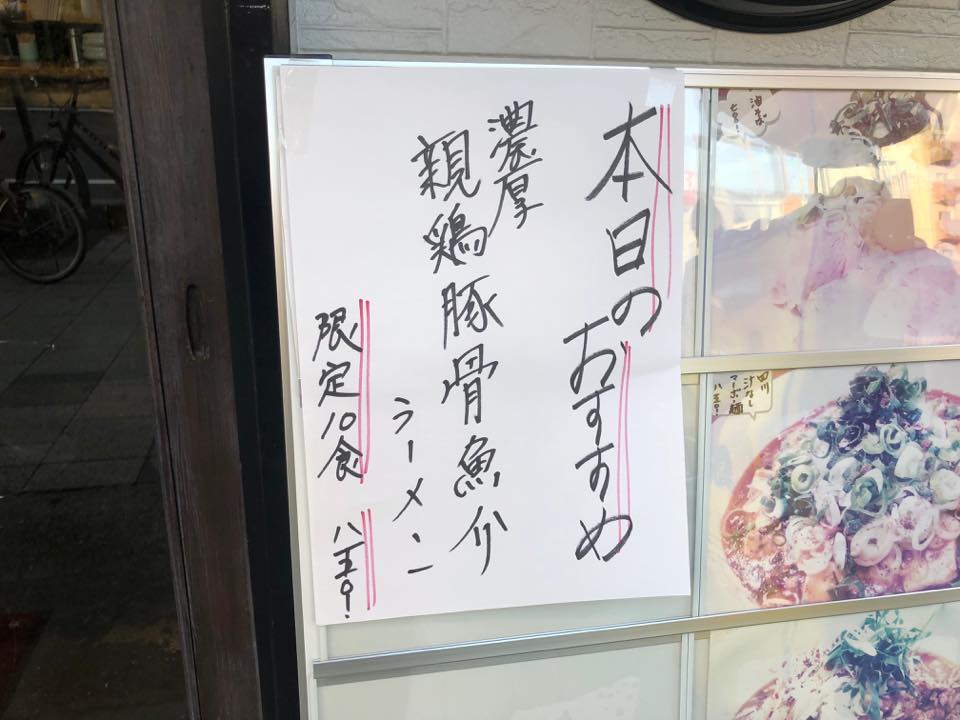 本日の
おすすめ
濃厚
親鶏豚骨魚介
ラーメン
限定10食
八五〇!
油そば
七五〇!
四川
汁なし
マーボー麺
八五〇!